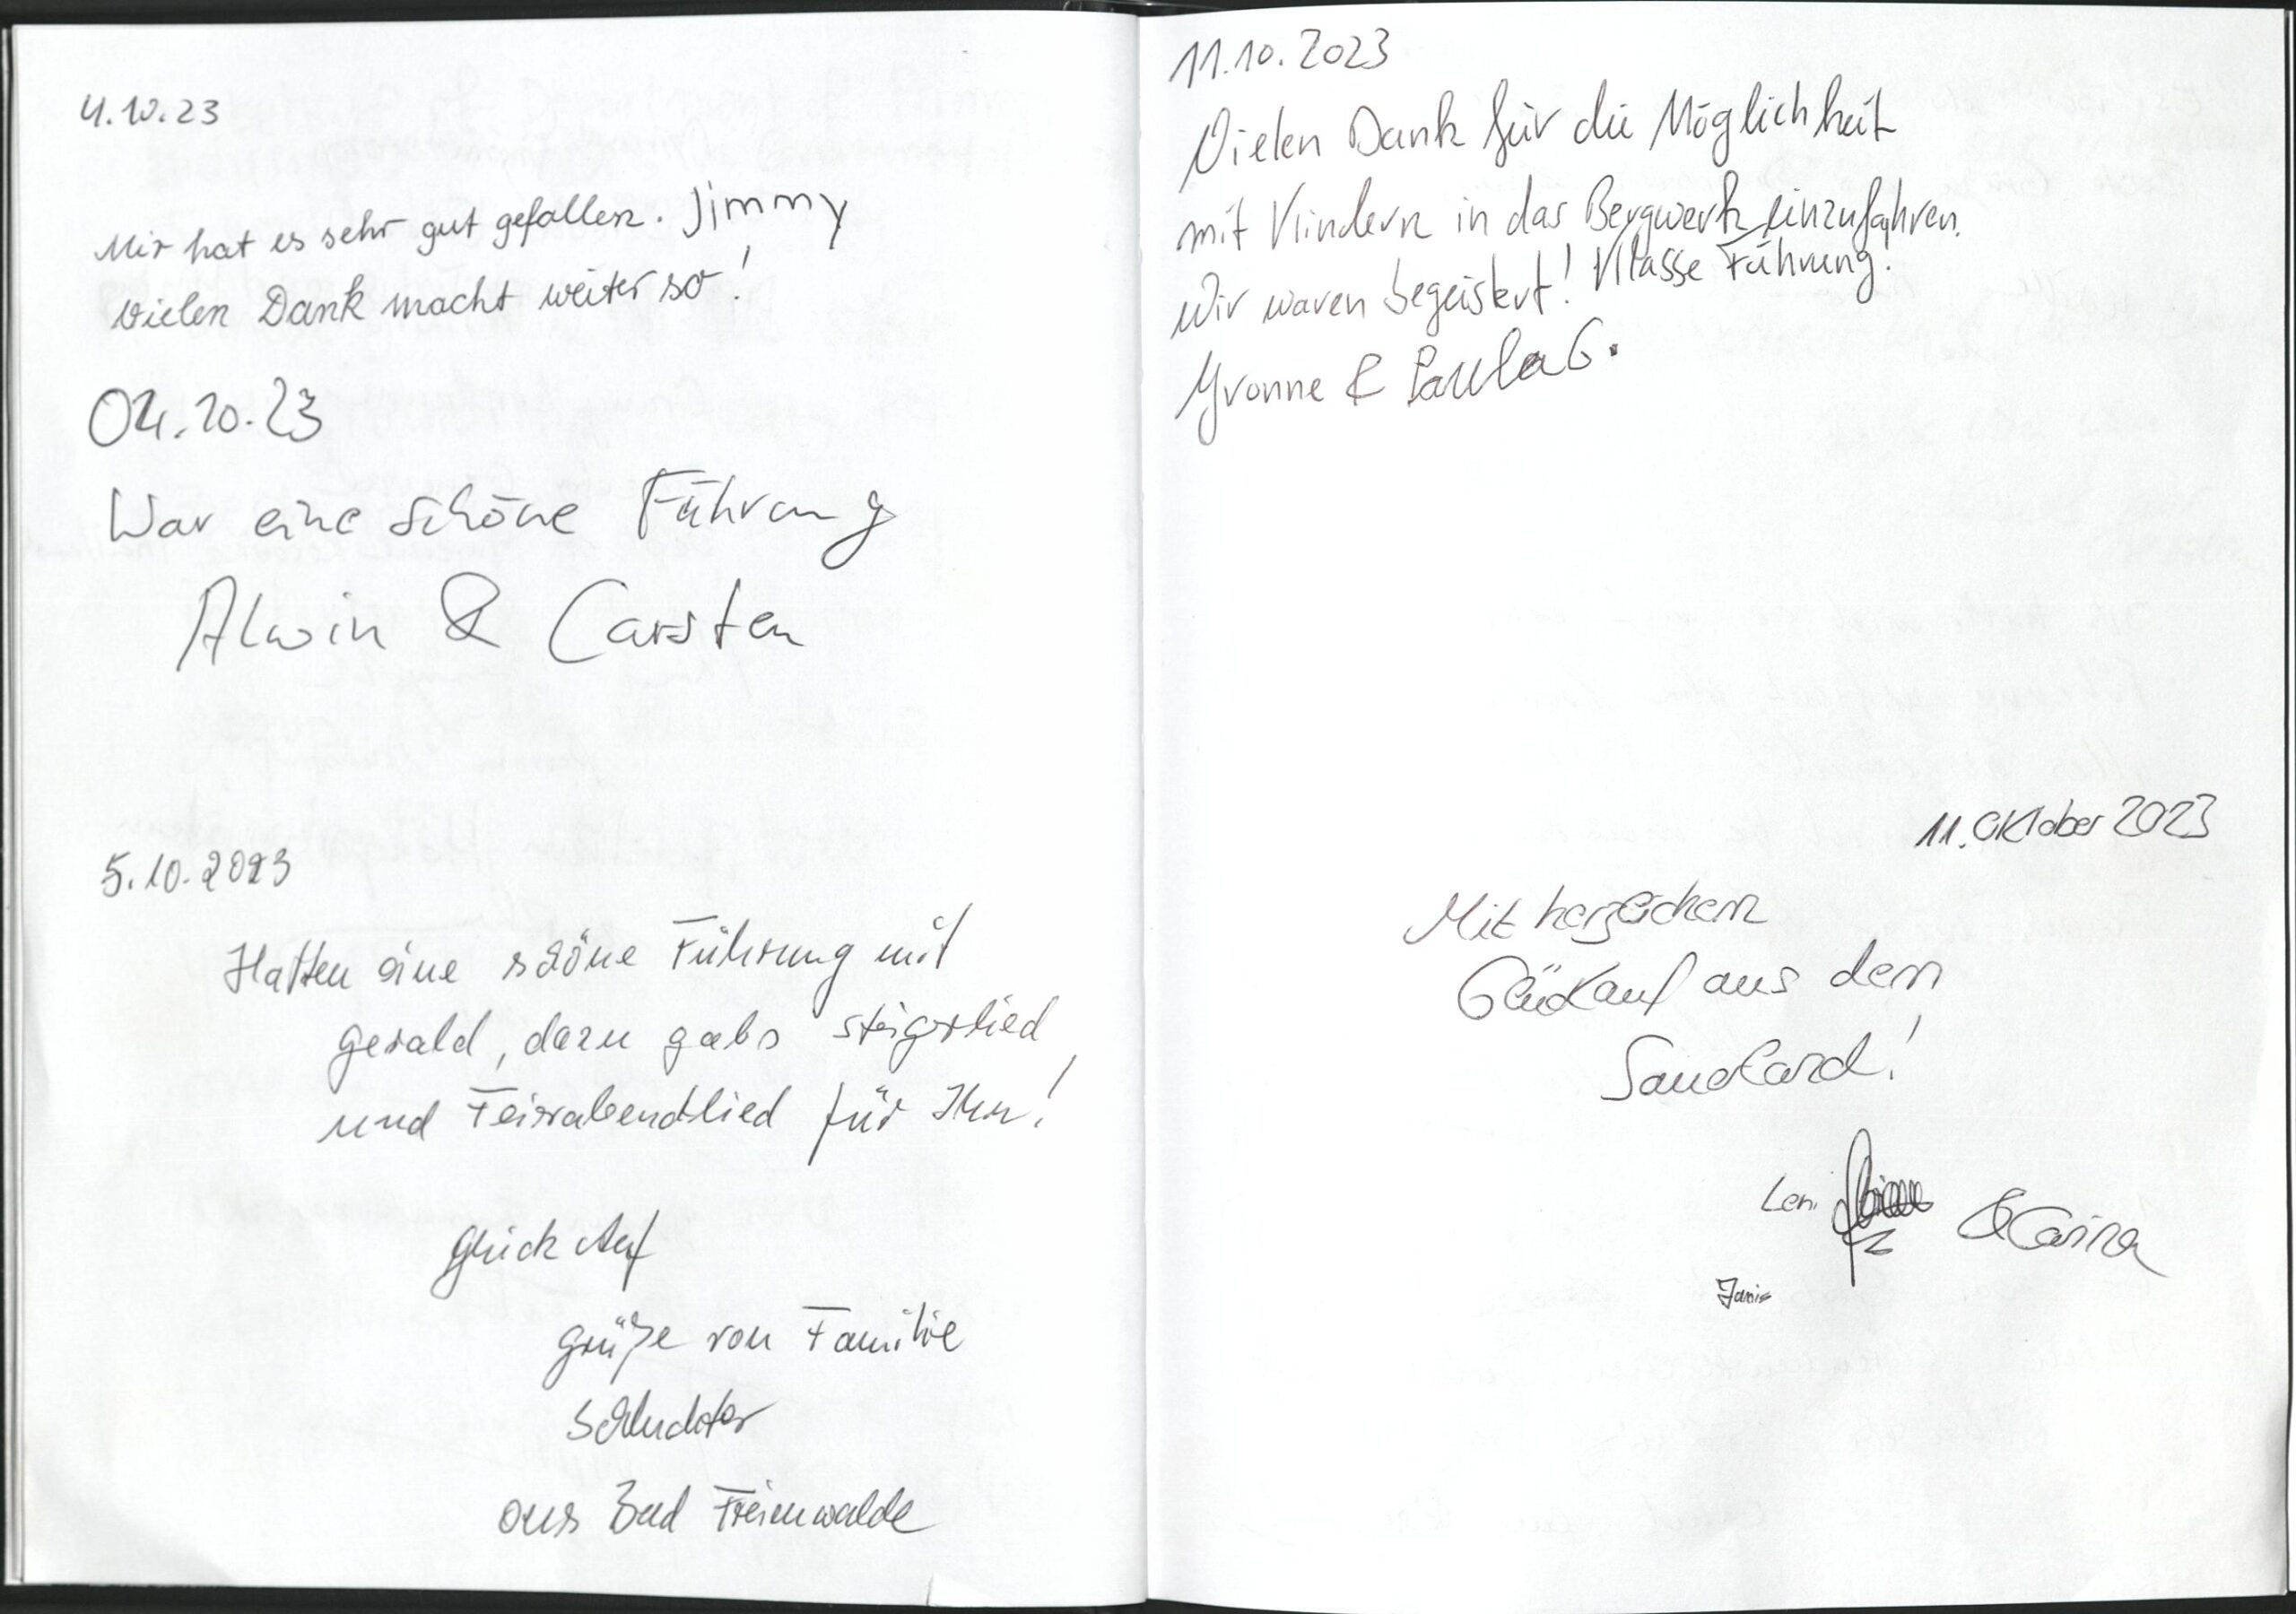 4.10.23
Mir hat es sehr gut gefallen. Jimmy
Vielen Dank macht weiter so!
04.10.23
War eine schöne Führung
Alwin & Carsten
5.10.2023
Hatten eine schöne Führung mit
gerald, dazu gabs steigerlied
und Feierabendlied für Ihn!
Glück Auf
grüße von Familie
aus Bad Freienwalde
11.10.2023
Vielen Dank für die Möglichkeit
mit Kindern in das Bergwerk einzufahren.
Wir waren begeistert! Klasse Führung.
Yvonne & Paula G.
11. Oktober 2023
Mit herzlichem
Glückauf aus dem
Sauerland!
Leni
& Carina
Janis